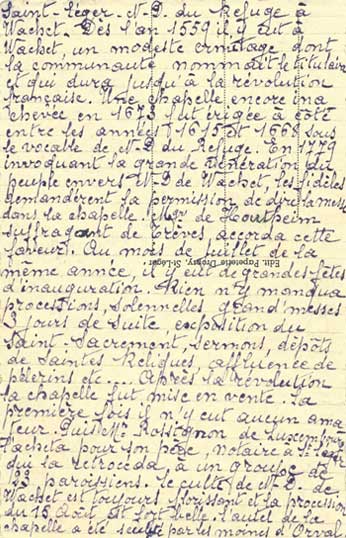 Saint-Léger - N-D. du Refuge à
Wachet. Dès l'an 1559 il y eut à
Wachet, un modeste ermitage dont
la communauté nommait le titulaire
et qui dura jusqu'à la révolution
française. Une chapelle encore ina
chevée en 1613 fut érigée à côté
entre les années 1615 et 1668 sous
le vocable de N-D du Refuge. En 1779
invoquant la grande vénération du
peuple envers N-D de Wachet, les fidèles
demandèrent la permission de dire la messe
dans la chapelle. Mgr de Hontheim
suffragant de Trèves accorda cette
faveur. Au mois de juillet de la
même année, il y eut de grandes fêtes
d'inauguration. Rien n'y manqua
processions, solennelles, grand'messes
3 jours de suite, exposition du
Saint-Sacrement, sermons, dépôts
de Saintes Reliques, affluence de
pèlerins etc.... Après la révolution
la chapelle fut mise en vente. La
première fois il n'y eut aucun ama
teur. Puis Mr. Rossignon de Luxembourg
l'acheta pour son père, notaire à St Léger
qui la rétrocéda, à un groupe de
23 paroissiens. Le culte de N-D. de
Wachet est toujours florissant et la procession
du 15 Août est fort belle. L'autel de la
chapelle a été sculpté par les moines d'Orval
Edit. Papeterie Grégory, St-Léger